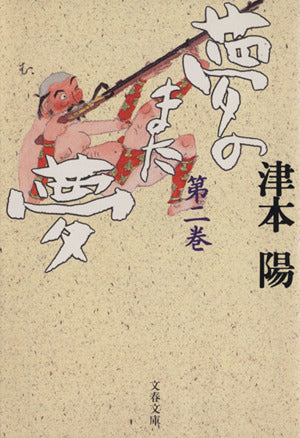 夢の
また
夢
第二巻
津本 陽
む、
文春文庫